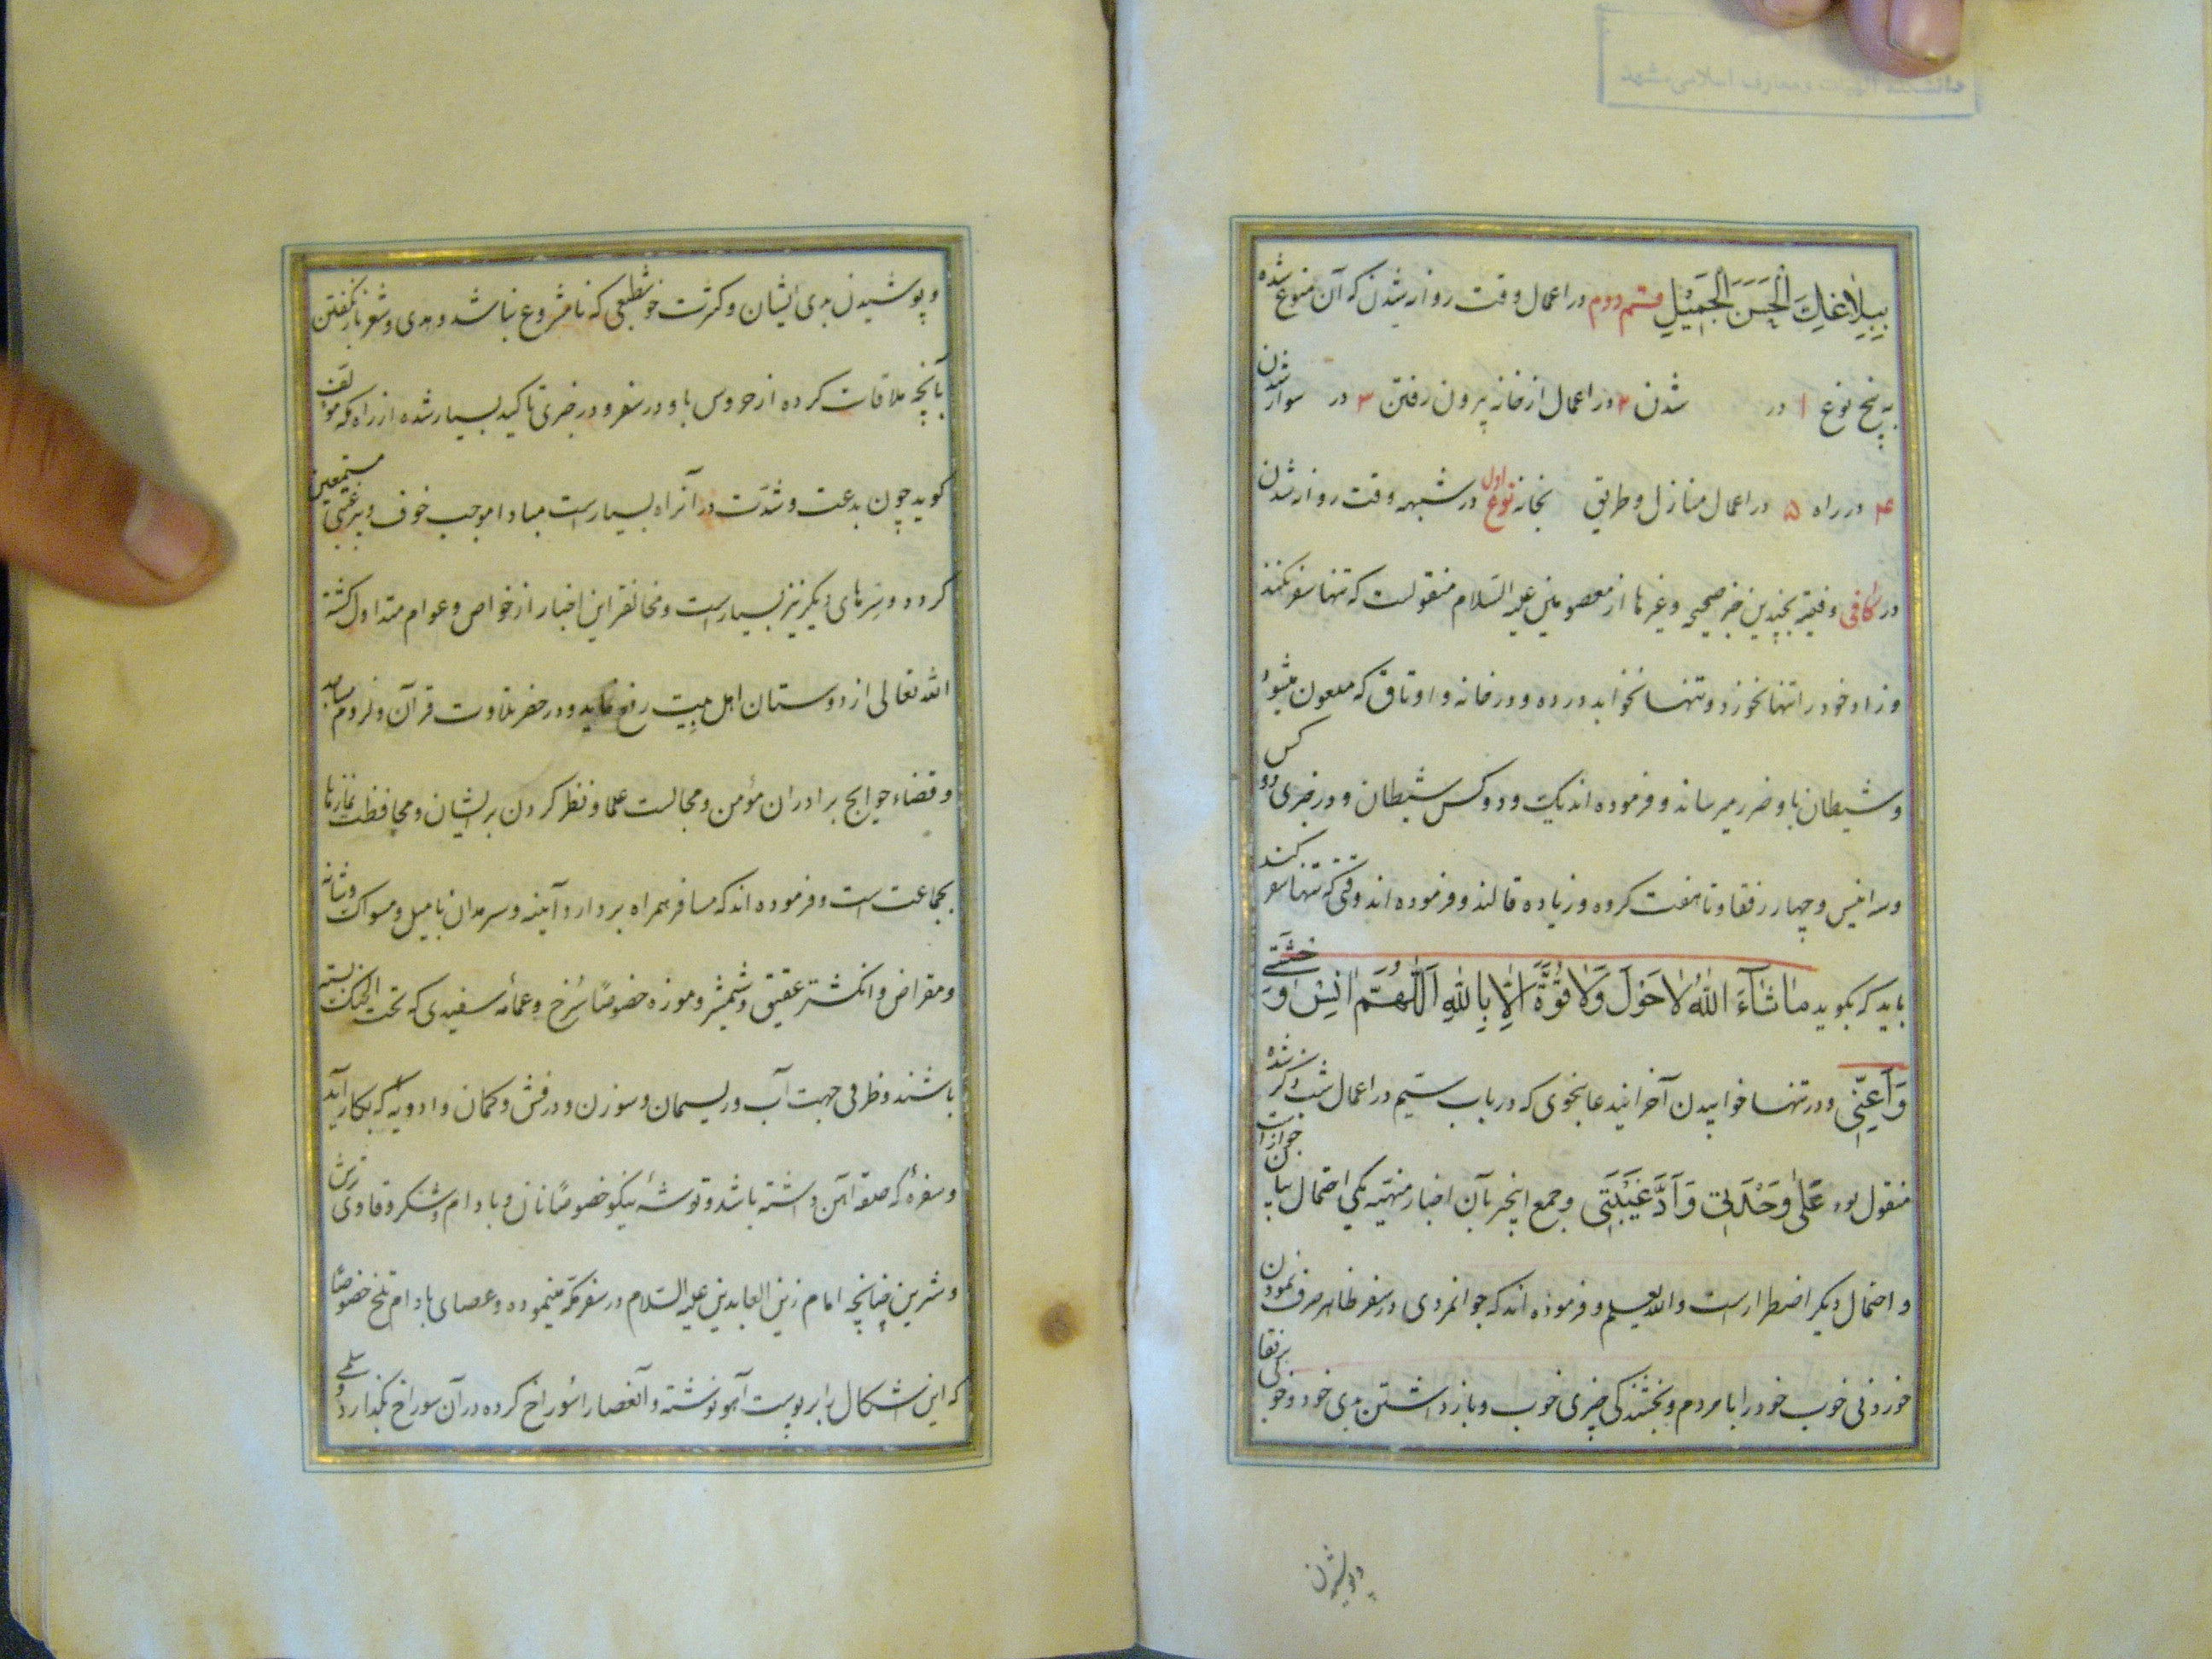 بِبِلاغِكَ الْحَسَنَ الْجَمِیلِ قسم دوم در اعمال وقت روانه شدن که آن منوع شده
به پنج نوع ۱ در شدن ۲ در اعمال از خانه بیرون رفتن ۳ در سوار شدن
۴ در راه ۵ در اعمال منازل و طریق بخانه نوع اول در شبهه وقت روانه شدن
در کافی و فقیه بچندین خبر صحیح و غیرها از معصومین علیه السّلام منقولست که تنها سفر نکنند
و زاد خود را تنها نخورد و تنها نخوابد در ده و در خانه و اوتاق که ملعون میشود
و شیطان باو ضرر میرساند و فرموده اند یک و دو کس شیطان و در خبری دو کس
و سه انیس و چهار رفقا و تا هفت کروه و زیاده قالند و فرموده اند وقتی که تنها سفر کند
باید که بکوید مٰا شٰاءَ اللهُ لاٰ حَوْلَ وَلاٰ قُوَّةَ اِلاّٰ بِاللهِ اَللّٰهُمَّ اٰنِسْ وَ خْشَتی
وَ اَعِنّی و در تنها خوابیدن آخر اینید عا بنحوی که در باب سیم در اعمال شب ذکر شده
منقول بود عَلیٰ وَحْدَتی وَ اَدِّ غَیْبَتی و جمع اینخبر بآن اخبار منهیّه یکی احتمال بیان جواز است
و احتمال دیکر اضطرار است والله یعلم و فرموده اند که جوانمردی در سفر ظاهر صرف نمودن
خوردنی خوب خود را با مردم و بخشندکی چیزی خوب و باز داشتن بدی خود و خوبی برفقا
و پوشیدن
و پوشیدن بدی ایشان و کثرت خوشطبعی که نامشروع نباشد و بدی و شعر باز نکفتن
بآنچه ملاقات کرده از حروس باو در سفر و در خبری تاکید بسیار شده از راه مکه مولف
کوید چون بدعت و شدّت در آنراه بسیار است مبادا موجب خوف و بیرغبتی مستمعین
کردد و سرهای دیکر نیز بسیار است و مخالفر این اخبار از خواص و عوام متداول کشته
الله تعالی از دوستان اهل بیت رفع نماید و در حضر تلاوت قرآن و لزوم مساجد
و قضاء حوایج برادران مؤمن و مجالست علما و نظر کردن بر ایشان و محافظت نمازها
بجماعت است و فرموده اند که مسافر همراه بردارد آینه و سرمدان با میل و مسواک و شانه
و مقراض و انکشتر عقیق و شمشیر و موزه خصوصًا سُرخ و عمامهٔ سفیدی که تحت الحنک بسته
باشند و ظرفی جهت آب و ریسمان و سوزن و درفش و کمان و ادویه که بکار آید
و سفرهٔ که حلقه آهن داشته باشد و توشهٔ نیکو خصوصًا نان و بادام و شکر و قاوی ترش
و شرین چنانچه امام زین العابدین علیه السّلام در سفر مکّه مینموده و عصای بادام تلخ خصوصًا
که این اشکال را بر پوست آهو نوشته و آنعصا را سوراخ کرده در آن سوراخ بگذارد